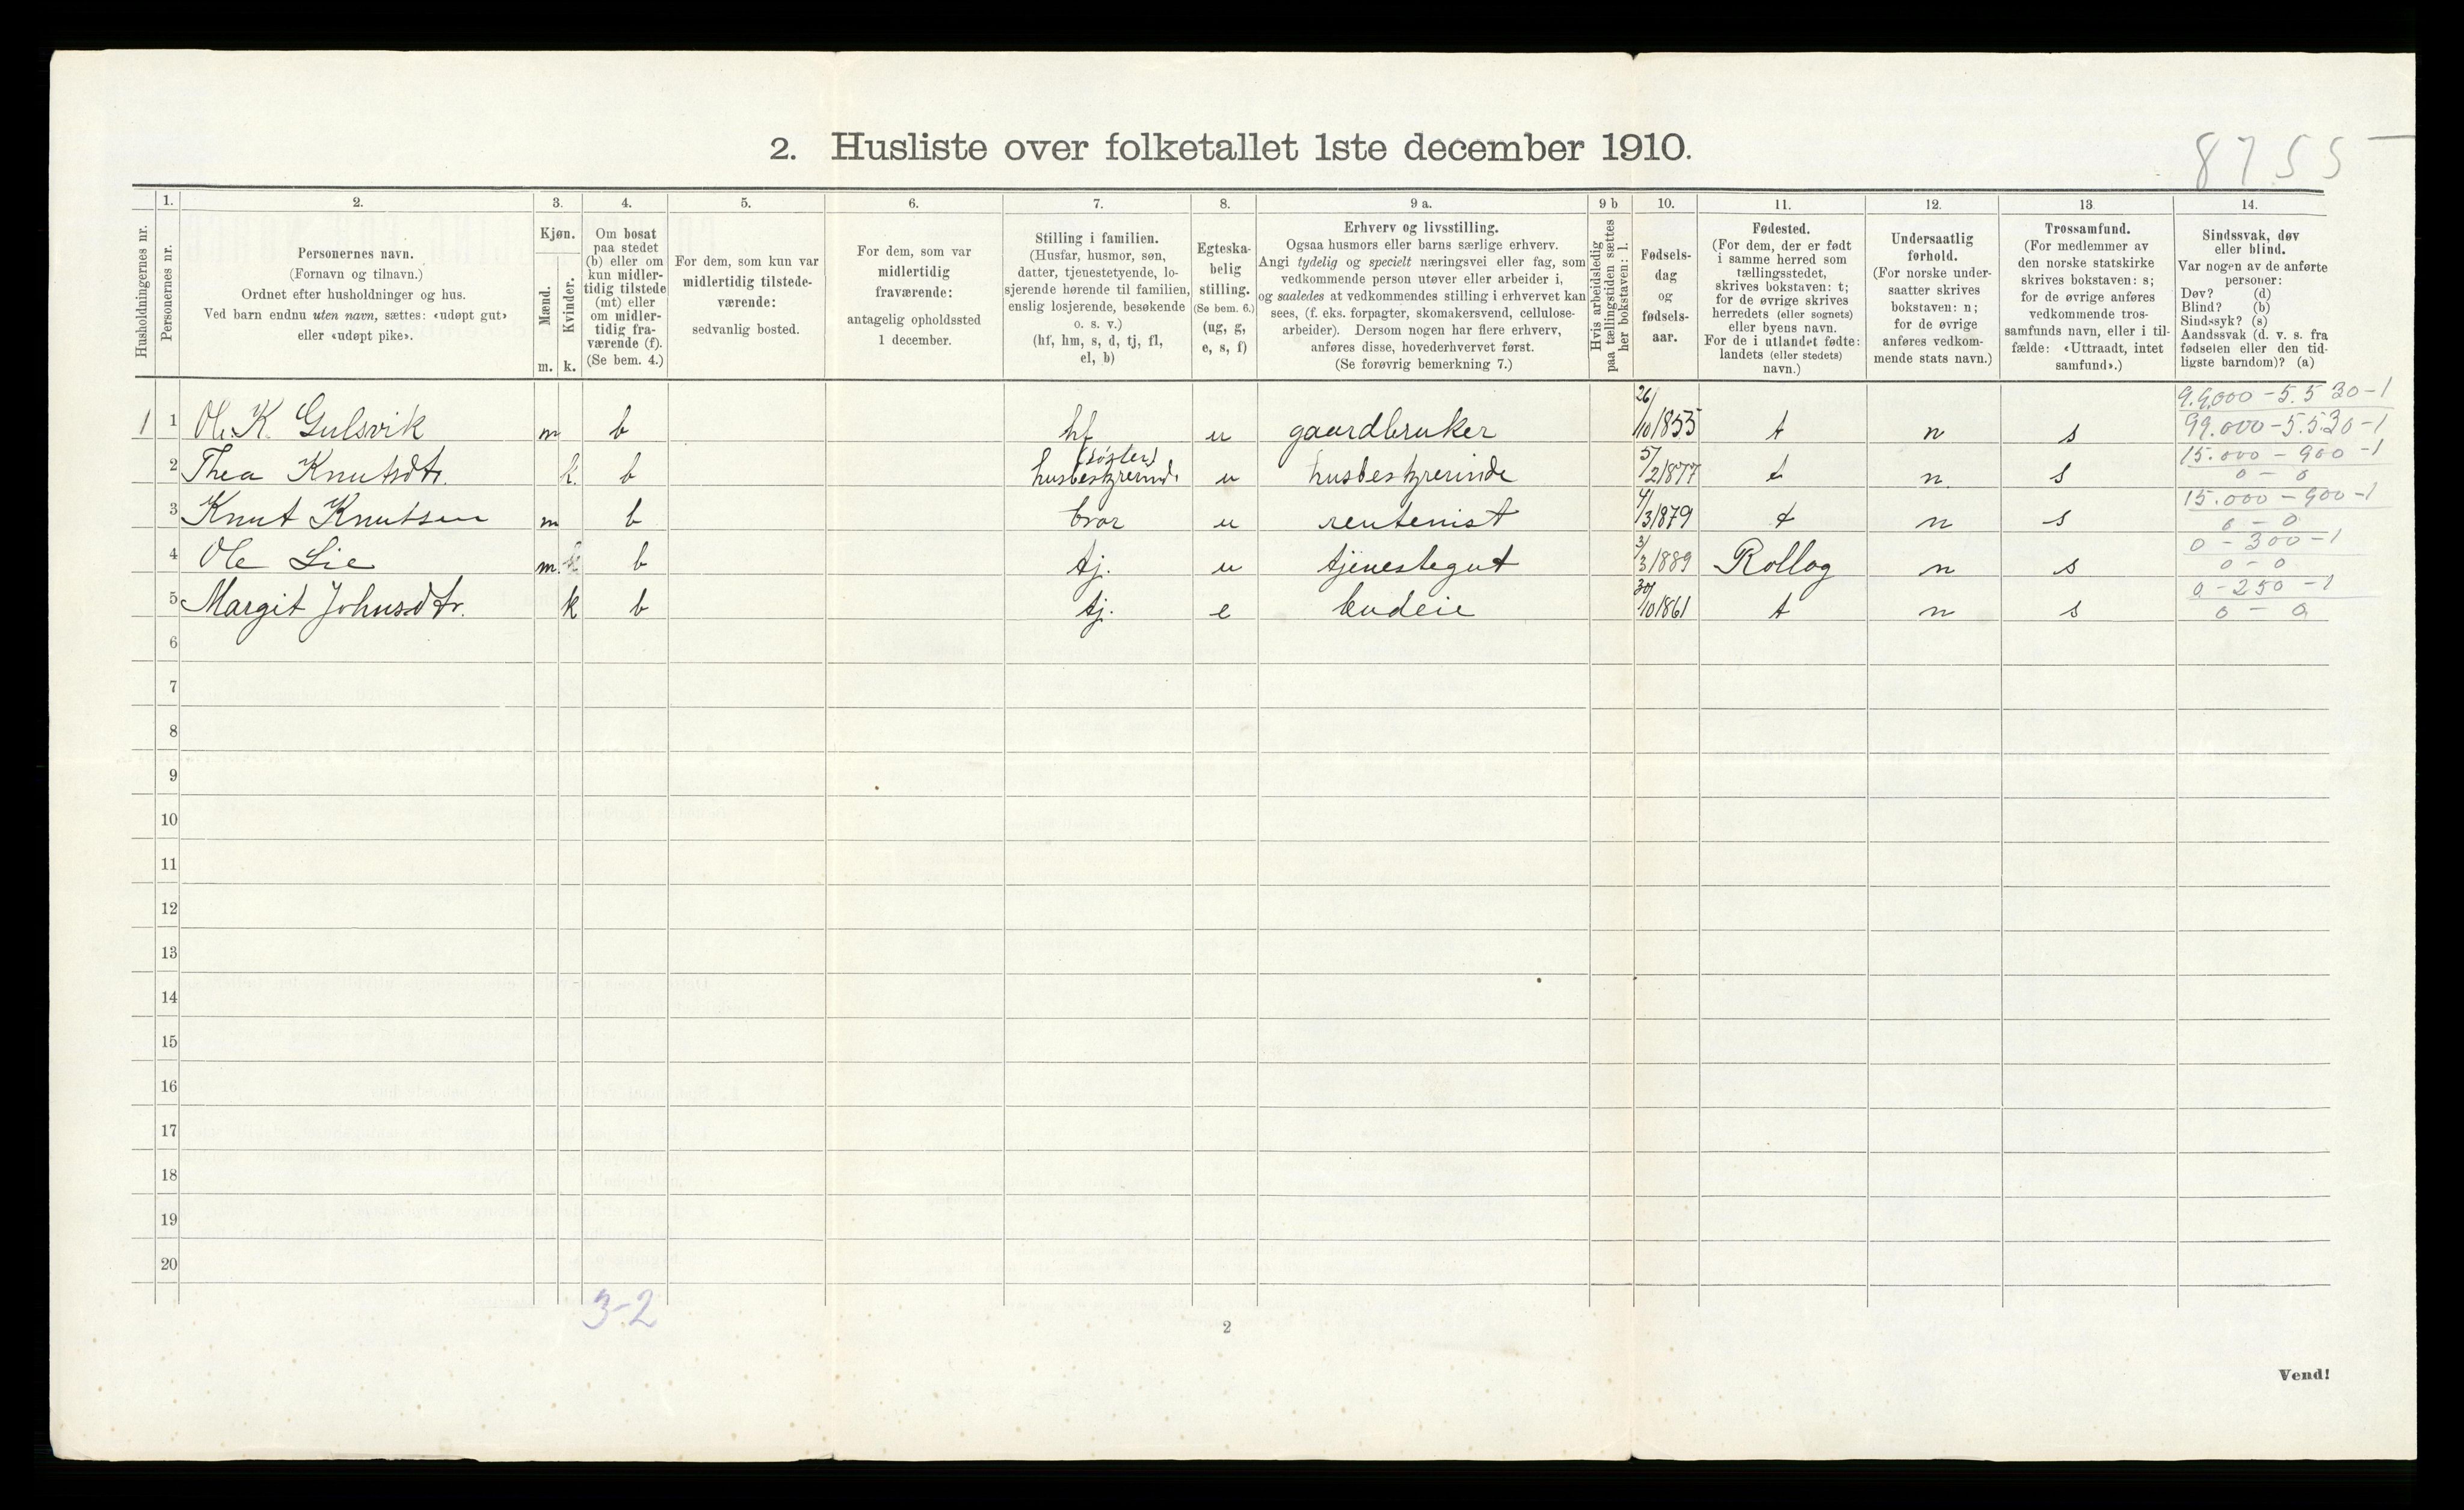 2. Husliste over folketallet 1ste december 1910.
8755
Husholdningernes nr.
1.
Personernes nr.
2.
Personernes navn.
(Fornavn og tilnavn.)
Ordnet efter husholdninger og hus.
Ved barn endnu uten navn, sættes: «udøpt gut»
eller «udøpt pike».
3.
Kjøn.
Mænd.
Kvinder.
m. k.
4.
Om bosat
paa stedet
(b) eller om
kun midler-
tidig tilstede
(mt) eller
om midler-
tidig fra-
værende (f).
(Se bem. 4.)
5.
For dem, som kun var
midlertidig tilstede-
værende:
sedvanlig bosted.
6.
For dem, som var
midlertidig
fraværende:
antagelig opholdssted
1 december.
7.
Stilling i familien.
(Husfar, husmor, søn,
datter, tjenestetyende, lo-
sjerende hørende til familien,
enslig losjerende, besøkende
o. s. v.)
(hf, hm, s, d, tj, fl,
el, b)
8.
Egteska-
belig
stilling.
(Se bem. 6.)
(ug, g,
e, s, f)
9 a.
Erhverv og livsstilling.
Ogsaa husmors eller barns særlige erhverv.
Angi tydelig og specielt næringsvei eller fag, som
vedkommende person utøver eller arbeider i,
og saaledes at vedkommendes stilling i erhvervet kan
sees, (f. eks. forpagter, skomakersvend, cellulose-
arbeider). Dersom nogen har flere erhverv,
anføres disse, hovederhvervet først.
(Se forøvrig bemerkning 7.)
9 b
Hvis arbeidsledig
paa tællingstiden sættes
her bokstaven: l.
10.
Fødsels-
dag
og
fødsels-
aar.
11.
Fødested.
(For dem, der er født
i samme herred som
tællingsstedet,
skrives bokstaven: t;
for de øvrige skrives
herredets (eller sognets)
eller byens navn.
For de i utlandet fødte:
landets (eller stedets)
navn.)
12.
Undersaatlig
forhold.
(For norske under-
saatter skrives
bokstaven: n;
for de øvrige
anføres vedkom-
mende stats navn.)
13.
Trossamfund.
(For medlemmer av
den norske statskirke
skrives bokstaven: s;
for de øvrige anføres
vedkommende tros-
samfunds navn, eller i til-
fælde: «Uttraadt, intet
samfund».)
14.
Sindssvak, døv
eller blind.
Var nogen av de anførte
personer:
Døv? (d)
Blind? (b)
Sindssyk? (s)
Aandssvak (d. v. s. fra
fødselen eller den tid-
ligste barndom)? (a)
99.000 - 5.530 - 1
1 1 Ole K. Gulsvik m b hf u gaardbruker 26/10 1855 t n s 99.000 - 5.530 - 1
15.000 - 900 - 1
2 Thea Knutsdtr. k. b (søster) husbestyrerinde u husbestyrerinde 5/2 1877 t n. s 0 - 0
15.000 - 900 - 1
3 Knut Knutsen m b bror u rentenist 4/3 1879 t n s 0 - 0
0 - 300 - 1
4 Ole Lie m. b tj. u tjenestegut 3/3 1889 Rollag n s 0 - 0
0 - 250 - 1
5 Margit Johnsdtr. k b tj. e budeie 30/10 1861 t n s 0 - 0
6
7
8
9
10
11
12
13
14
15
16
17
18
19
20
3-2
2
Vend!